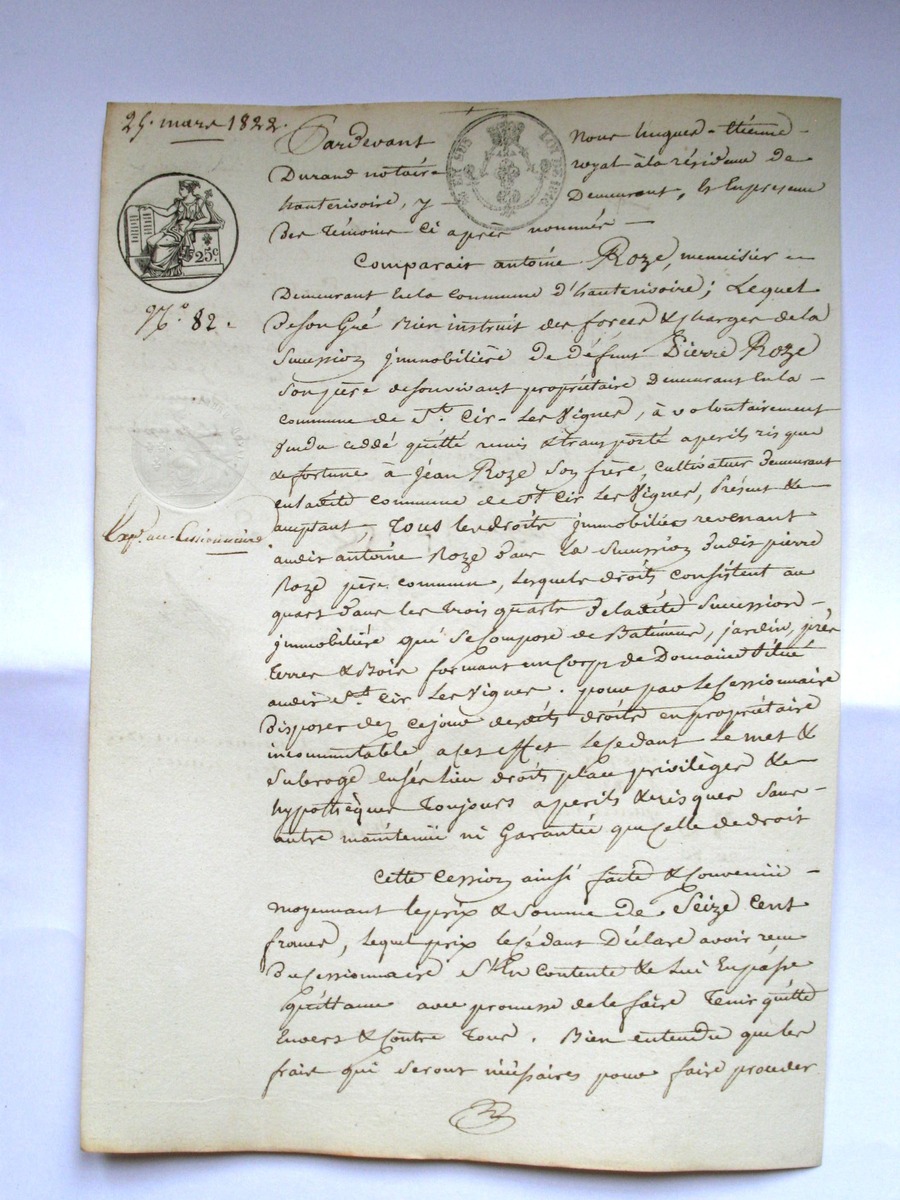 25. mars 1822.
Pardevant Nous hugues-étienne
Durand notaire royal à la résidence de
hauterivoire, y Demeurant, & En presence
Des Témoins Ci après nommés
25c
Comparait antoine Roze, menuisier
Demeurant En la Commune d'hauterivoire; Lequel
N.° 82.
De son Gré Bien instruit des forces & charges de la
Succession jmmobilière De défunt Pierre Roze
Son père de son vivant propriétaire Demeurant En la
Commune de St. Cir-Les Vignes, à volontairement
vendu Ceddé quitté remis & transporté a perils risque
& fortune à Jean Roze Son frère, Cultivateur Demeurant
en ladite Commune de St Cir Les Vignes, Présent &
Exp.on au Cessionnaire
acceptant Tous les droits jmmobiliers revenant
audit antoine Roze Dans La Succession Dudit pierre
Roze père Commun, Lesquels droits Consistent au
quart Dans les Trois quarts De ladite Succession
jmmobilière qui Se Compose de Batimens, jardin, près
terres & Bois formant un Corps de Domaine Situé
audit St. Cir Les Vignes. pour par Le Cessionnaire
Disposer dez Ce jour desdits droits en propriétaire
incommutable a cet effet Le Cedant Le met &
Subroge en ses Lieu droits place privilèges &
hypothèques Toujours a perils & risques Sans
autre maintenüe ni Garantie que Celle de droit
Cette Cession ainsi faite & Convenüe
moyennant le prix & Somme de Seize Cent
francs, Lequel prix le Cédant Déclare avoir recu
Du Cessionnaire S'En Contente & Lui En passe
quittance avec promesse de le faire Tenir quitte
Envers & Contre Tous. Bien entendu que les
frais qui Seront nécessaires pour faire proceder